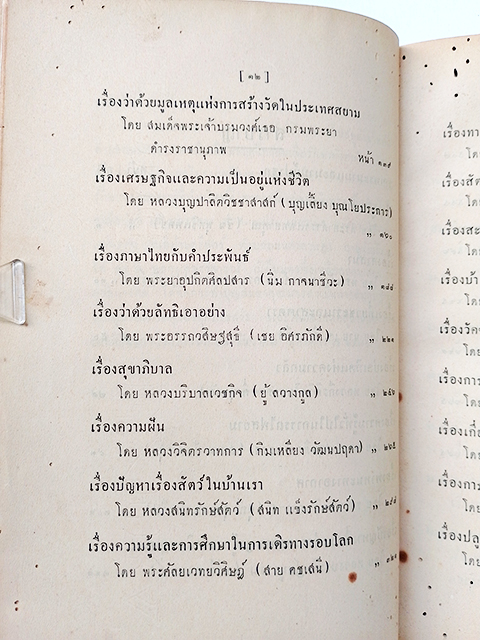 [ ๓๒ ]
เรื่องว่าด้วยมูลเหตุแห่งการสร้างวัดในประเทศสยาม
โดย สมเด็จพระเจ้าบรมวงศ์เธอ กรมพระยา
ดำรงราชานุภาพ หน้า ๑๓๙
เรื่องเศรษฐกิจและความเป็นอยู่แห่งชีวิต
โดย หลวงบุญปาลิตวิชชาสาสก์ (บุญเลี้ยง บุณโยประการ)
„ ๑๖๐
เรื่องภาษาไทยกับคำประพันธ์
โดย พระยาอุปกิตศิลปสาร (นิ่ม กาจนาชีวะ) „ ๑๘๘
เรื่องว่าด้วยลัทธิเอาอย่าง
โดย พระอรรถวสิษฐสุธี (เชย อิศรภักดี) „ ๒๒๑
เรื่องสุขาภิบาล
โดย หลวงบริบาลเวชกิจ (ยู้ ลวางกูล) „ ๒๔๖
เรื่องความฝัน
โดย หลวงวิจิตรวาทการ (กิมเหลียง วัฒนปฤดา) „ ๒๖๕
เรื่องปัญหาเรื่องสัตว์ในบ้านเรา
โดย หลวงสนิทรักษ์สัตว์ (สนิท แข็งรักษ์สัตว์) „ ๒๙๘
เรื่องความรู้และการศึกษาในการเดิรทางรอบโลก
โดย พระศัลยเวทยวิศิษฏ์ (สาย คชเสนี)
เรื่องทา
เรื่องสัต
เรื่องสะ
เรื่องบ้า
เรื่องวัค
เรื่องการ
เรื่องเกี่
เรื่องการ
เรื่องปลู